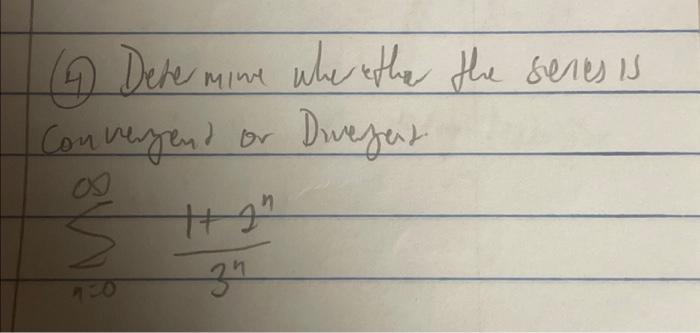 ④ Determine whether the series is
Convergent or Divergent.
∞
∑ 1 + 2ⁿ / 3ⁿ
n=0